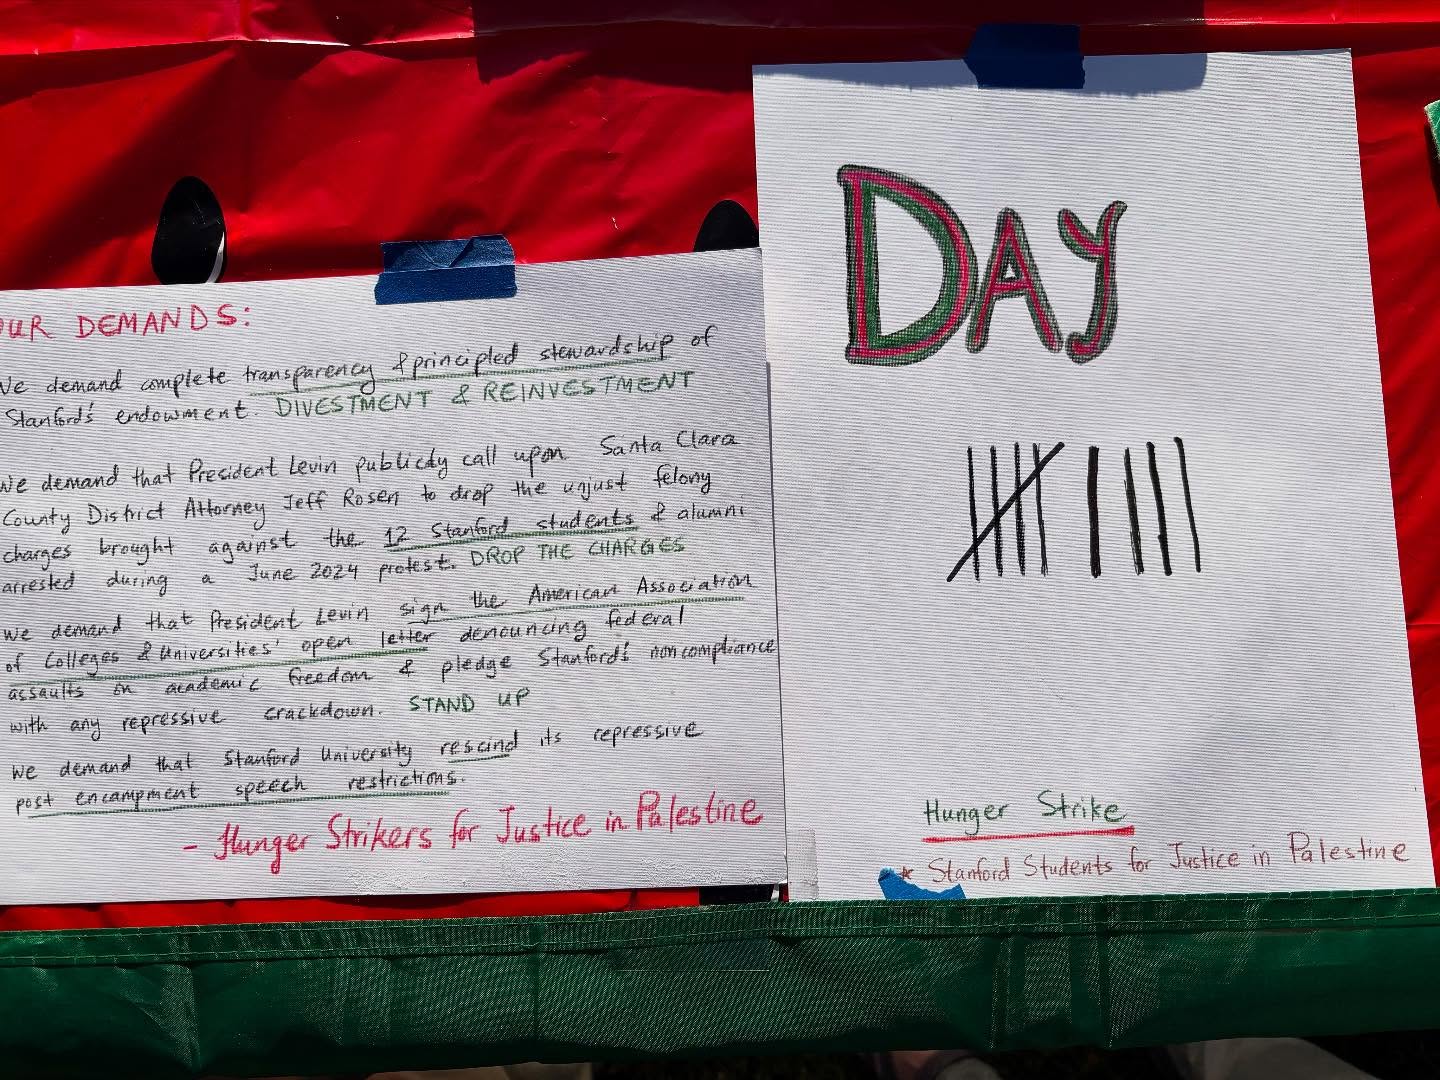 OUR DEMANDS:
We demand complete transparency & principled stewardship of
Stanford's endowment. DIVESTMENT & REINVESTMENT
We demand that President Levin publicly call upon Santa Clara
County District Attorney Jeff Rosen to drop the unjust felony
charges brought against the 12 Stanford students & alumni
arrested during a June 2024 protest. DROP THE CHARGES
We demand that President Levin sign the American Association
of Colleges & Universities' open letter denouncing federal
assaults on academic freedom & pledge Stanford's noncompliance
with any repressive crackdown. STAND UP
We demand that Stanford University rescind its repressive
post encampment speech restrictions.
- Hunger Strikers for Justice in Palestine
DAY
Hunger Strike
* Stanford Students for Justice in Palestine